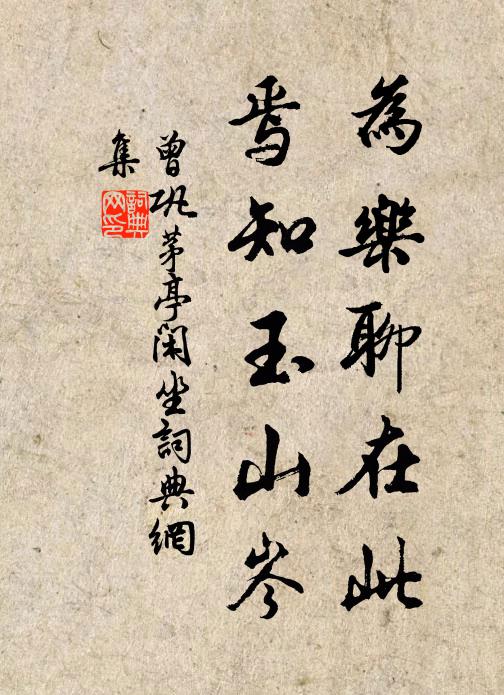 為樂聊在此
焉知玉山岑
曾巩茅亭閑坐詞典網
集
詞典
网印